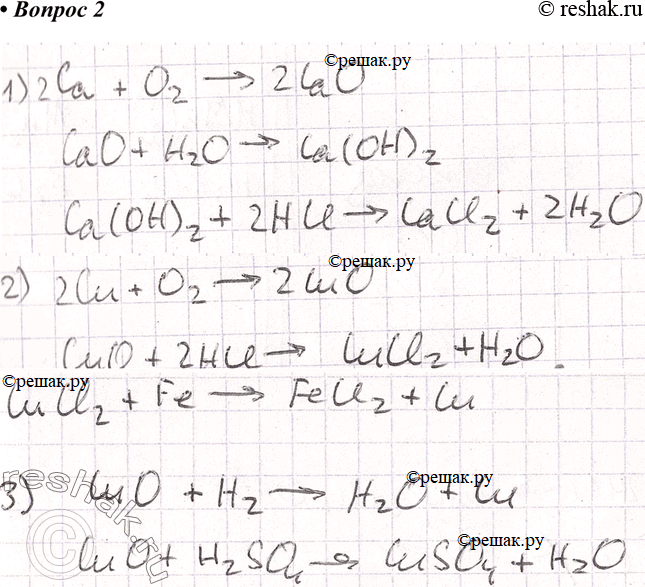 • Вопрос 2
© reshak.ru
©решак.ру
1) 2Ca + O₂ → 2CaO
CaO + H₂O → Ca(OH)₂
Ca(OH)₂ + 2HCl → CaCl₂ + 2H₂O
©решак.ру
2) 2Cu + O₂ → 2CuO
CuO + 2HCl → CuCl₂ + H₂O.
©решак.ру
CuCl₂ + Fe → FeCl₂ + Cu
©решак.ру
3) CuO + H₂ → H₂O + Cu
©решак.ру
CuO + H₂SO₄ → CuSO₄ + H₂O
© reshak.ru